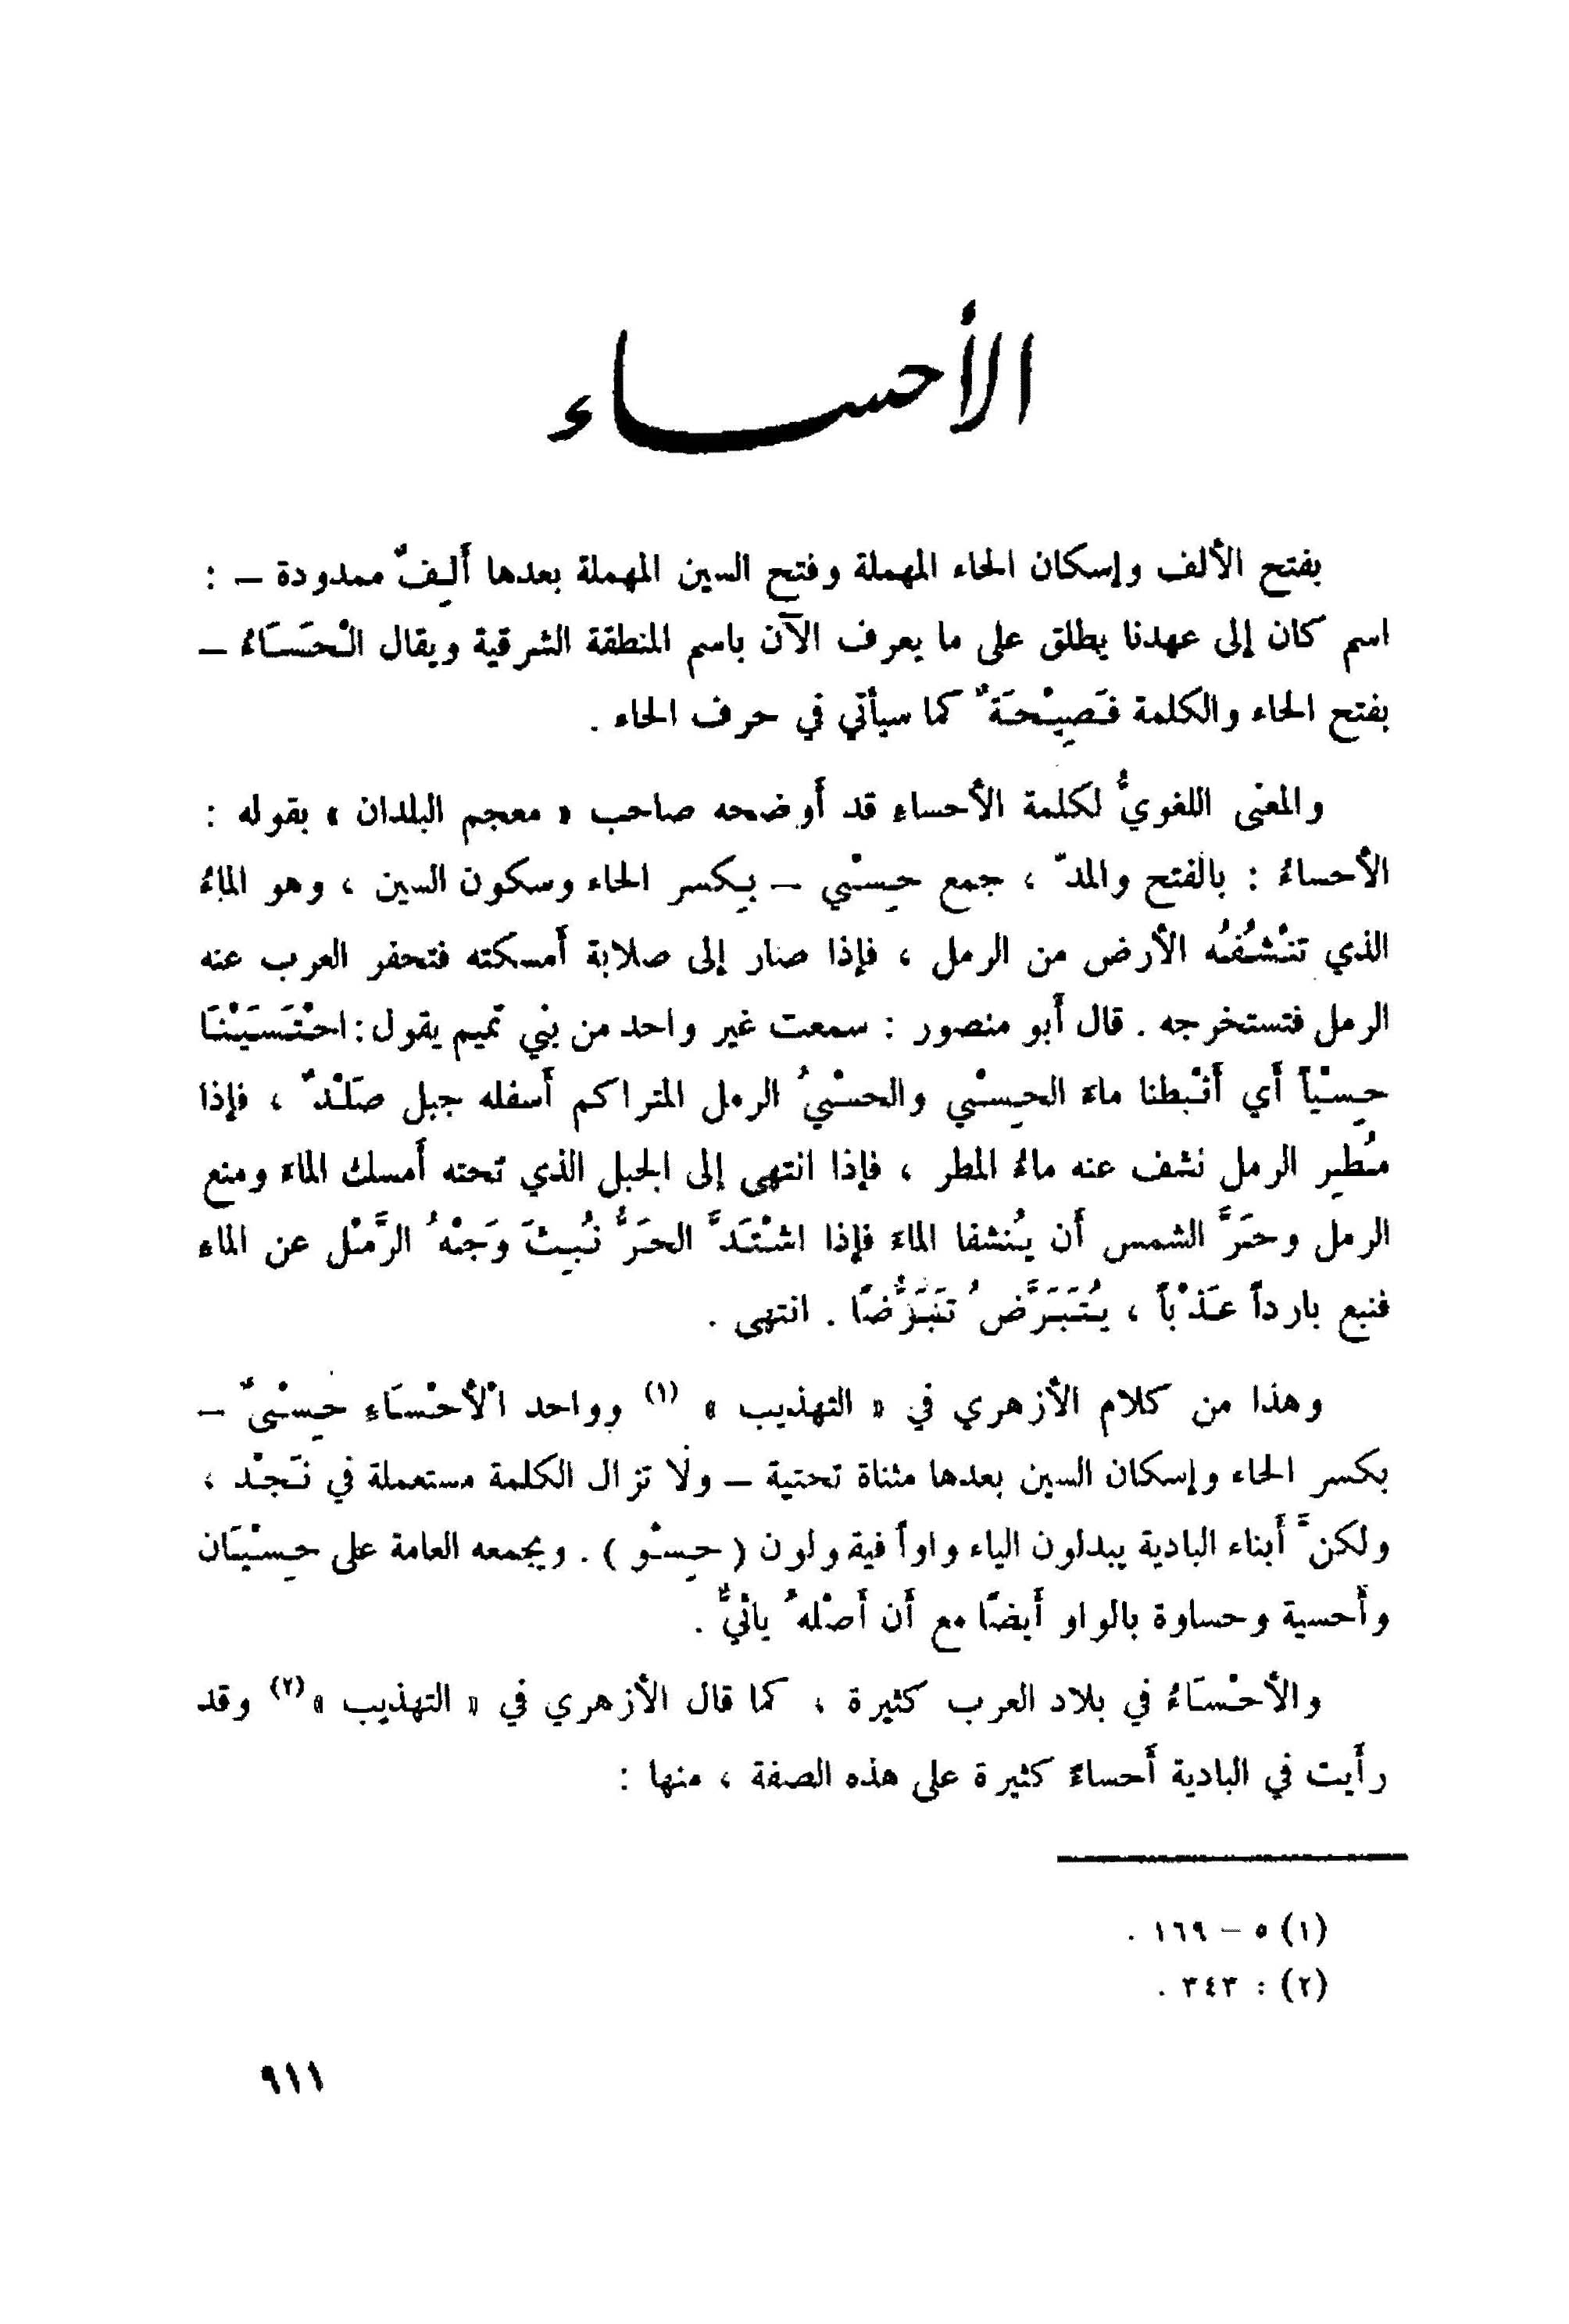 الأحساء
بفتح الألف وإسكان الحاء المهملة وفتح السين المهملة بعدها أَلِفٌ ممدودة – :
اسم كان إلى عهدنا يطلق على ما يعرف الآن باسم المنطقة الشرقية ويقال الْحَسَاءُ –
بفتح الحاء والكلمة فَصِيْحَةٌ كما سيأتي في حرف الحاء .
والمعنى اللغويُّ لكلمة الأحساء قد أوضحه صاحب « معجم البلدان » بقوله :
الأحساءُ : بالفتح والمدّ ، جمع حِسْي – بِكسر الحاء وسكون السين ، وهو الماءُ
الذي تَنْشُفُه الأرض من الرمل ، فإذا صار إلى صلابة أمسكته فتحفر العرب عنه
الرمل فتستخرجه . قال أبو منصور : سمعت غير واحد من بني تميم يقول : احْتَسَيْنَا
حِسْياً أي أنْبطنا ماء الحِسْي والحسْيُ الرمل المتراكم أسفله جبل صَلْدٌ ، فإذا
مُطِر الرمل نشف عنه ماءُ المطر ، فإذا انتهى إلى الجبل الذي تحته أمسك الماءَ ومنع
الرمل وحَرَّ الشمس أن يُنشفا الماءَ فإذا اشْتَدَّ الحَرُّ نُبِثَ وَجْهُ الرَّمْل عن الماء
فنبع بارداً عَذْباً ، يُتَبَرَّضُ تَبَرُّضًا . انتهى .
وهذا من كلام الأزهري في « التهذيب » (١) وواحد الْأَحْسَاءِ حِسْىٌ –
بكسر الحاء وإسكان السين بعدها مثناة تحتية – ولا تزال الكلمة مستعملة في نَجْد ،
ولكنَّ أبناء البادية يبدلون الياء واواً فيقولون ( حِسْو ) . ويجمعه العامة على حِسْيَان
وأحسية وحساوة بالواو أيضًا مع أن أصْلهُ يائيٌّ .
والأحْسَاءُ في بلاد العرب كثيرة ، كما قال الأزهري في « التهذيب » (٢) وقد
رأيت في البادية أحساءَ كثيرة على هذه الصفة ، منها :
(١) ٥ – ١٦٩ .
(٢) : ٣٤٣ .
٩١١